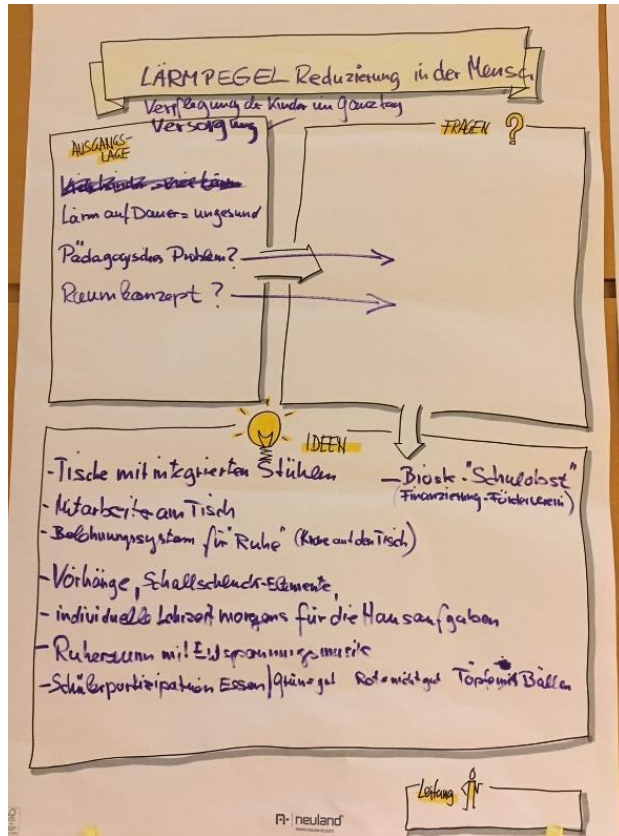 LÄRMPEGEL Reduzierung in der Mensa
Verpflegung der Kinder im Ganztag
Versorgung
AUSGANGS-
LAGE
Lärm auf Dauer = ungesund
Pädagogisches Problem?
Raumkonzept ?
FRAGEN ?
IDEEN
- Tische mit integrierten Stühlen
- Mitarbeiter am Tisch
- Belohnungssystem für "Ruhe" (Kerze auf den Tisch)
- Vorhänge, Schallschluck-Elemente,
- individuelle Lehrzeit morgens für die Hausaufgaben
- Ruheraum mit Entspannungsmusik
- Schülerpartizipation Essen/grün=gut Rot=nicht gut Töpfe mit Bällen
- Biosk. "Schulobst"
(Finanzierung-Förderverein)
Leitung
neuland
www.neuland.com